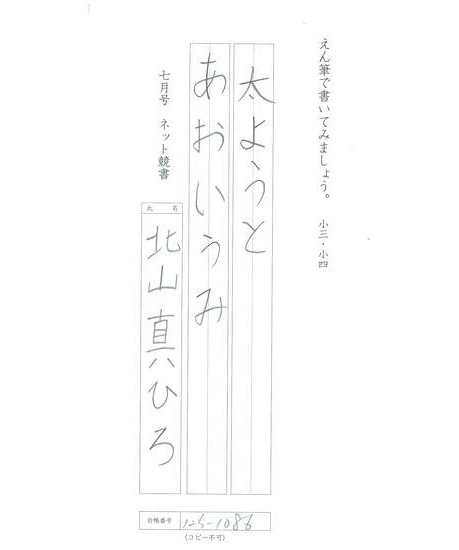 えん筆で書いてみましょう。 小三・小四
太ようと
あおいうみ
七月号 ネット競書
氏 名
北山真ひろ
台帳番号 125-1086
(コピー不可)